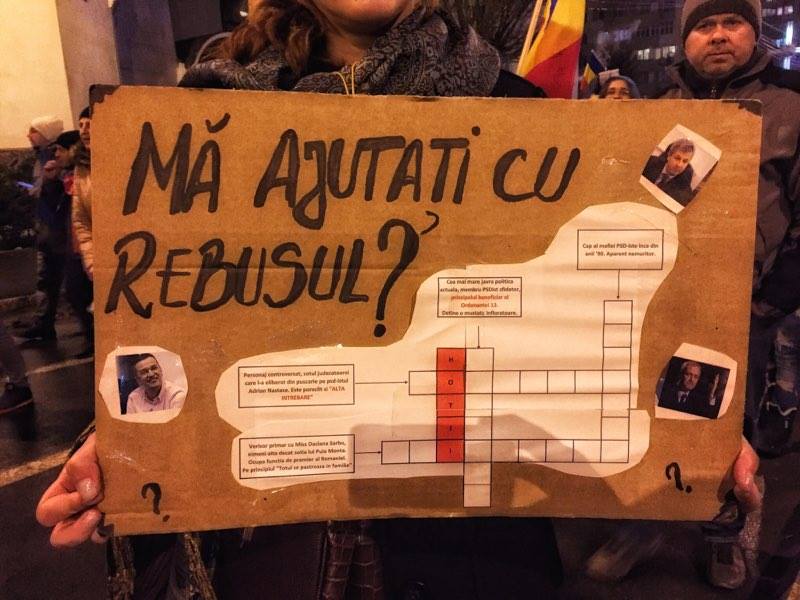 MĂ AJUTAȚI CU
REBUSUL?
Cap al mafiei PSD-iste inca din
anii '90. Aparent nemuritor.
Cea mai mare javra politica
actuala, membru PSDist sfidator,
principalul beneficiar al
Ordonantei 13.
Detine o mustata infloratoare.
Personaj controversat, sotul judecatoarei
care l-a eliberat din puscarie pe psd-istul
Adrian Nastase. Este poreclit si "ALTA
INTREBARE"
Verisor primar cu Miss Daciana Sarbu,
nimeni alta decat sotia lui Pula Monta.
Ocupa functia de premier al Romaniei.
Pe principiul "Totul se pastreaza in familie"
H
O
T
I
I
?
?